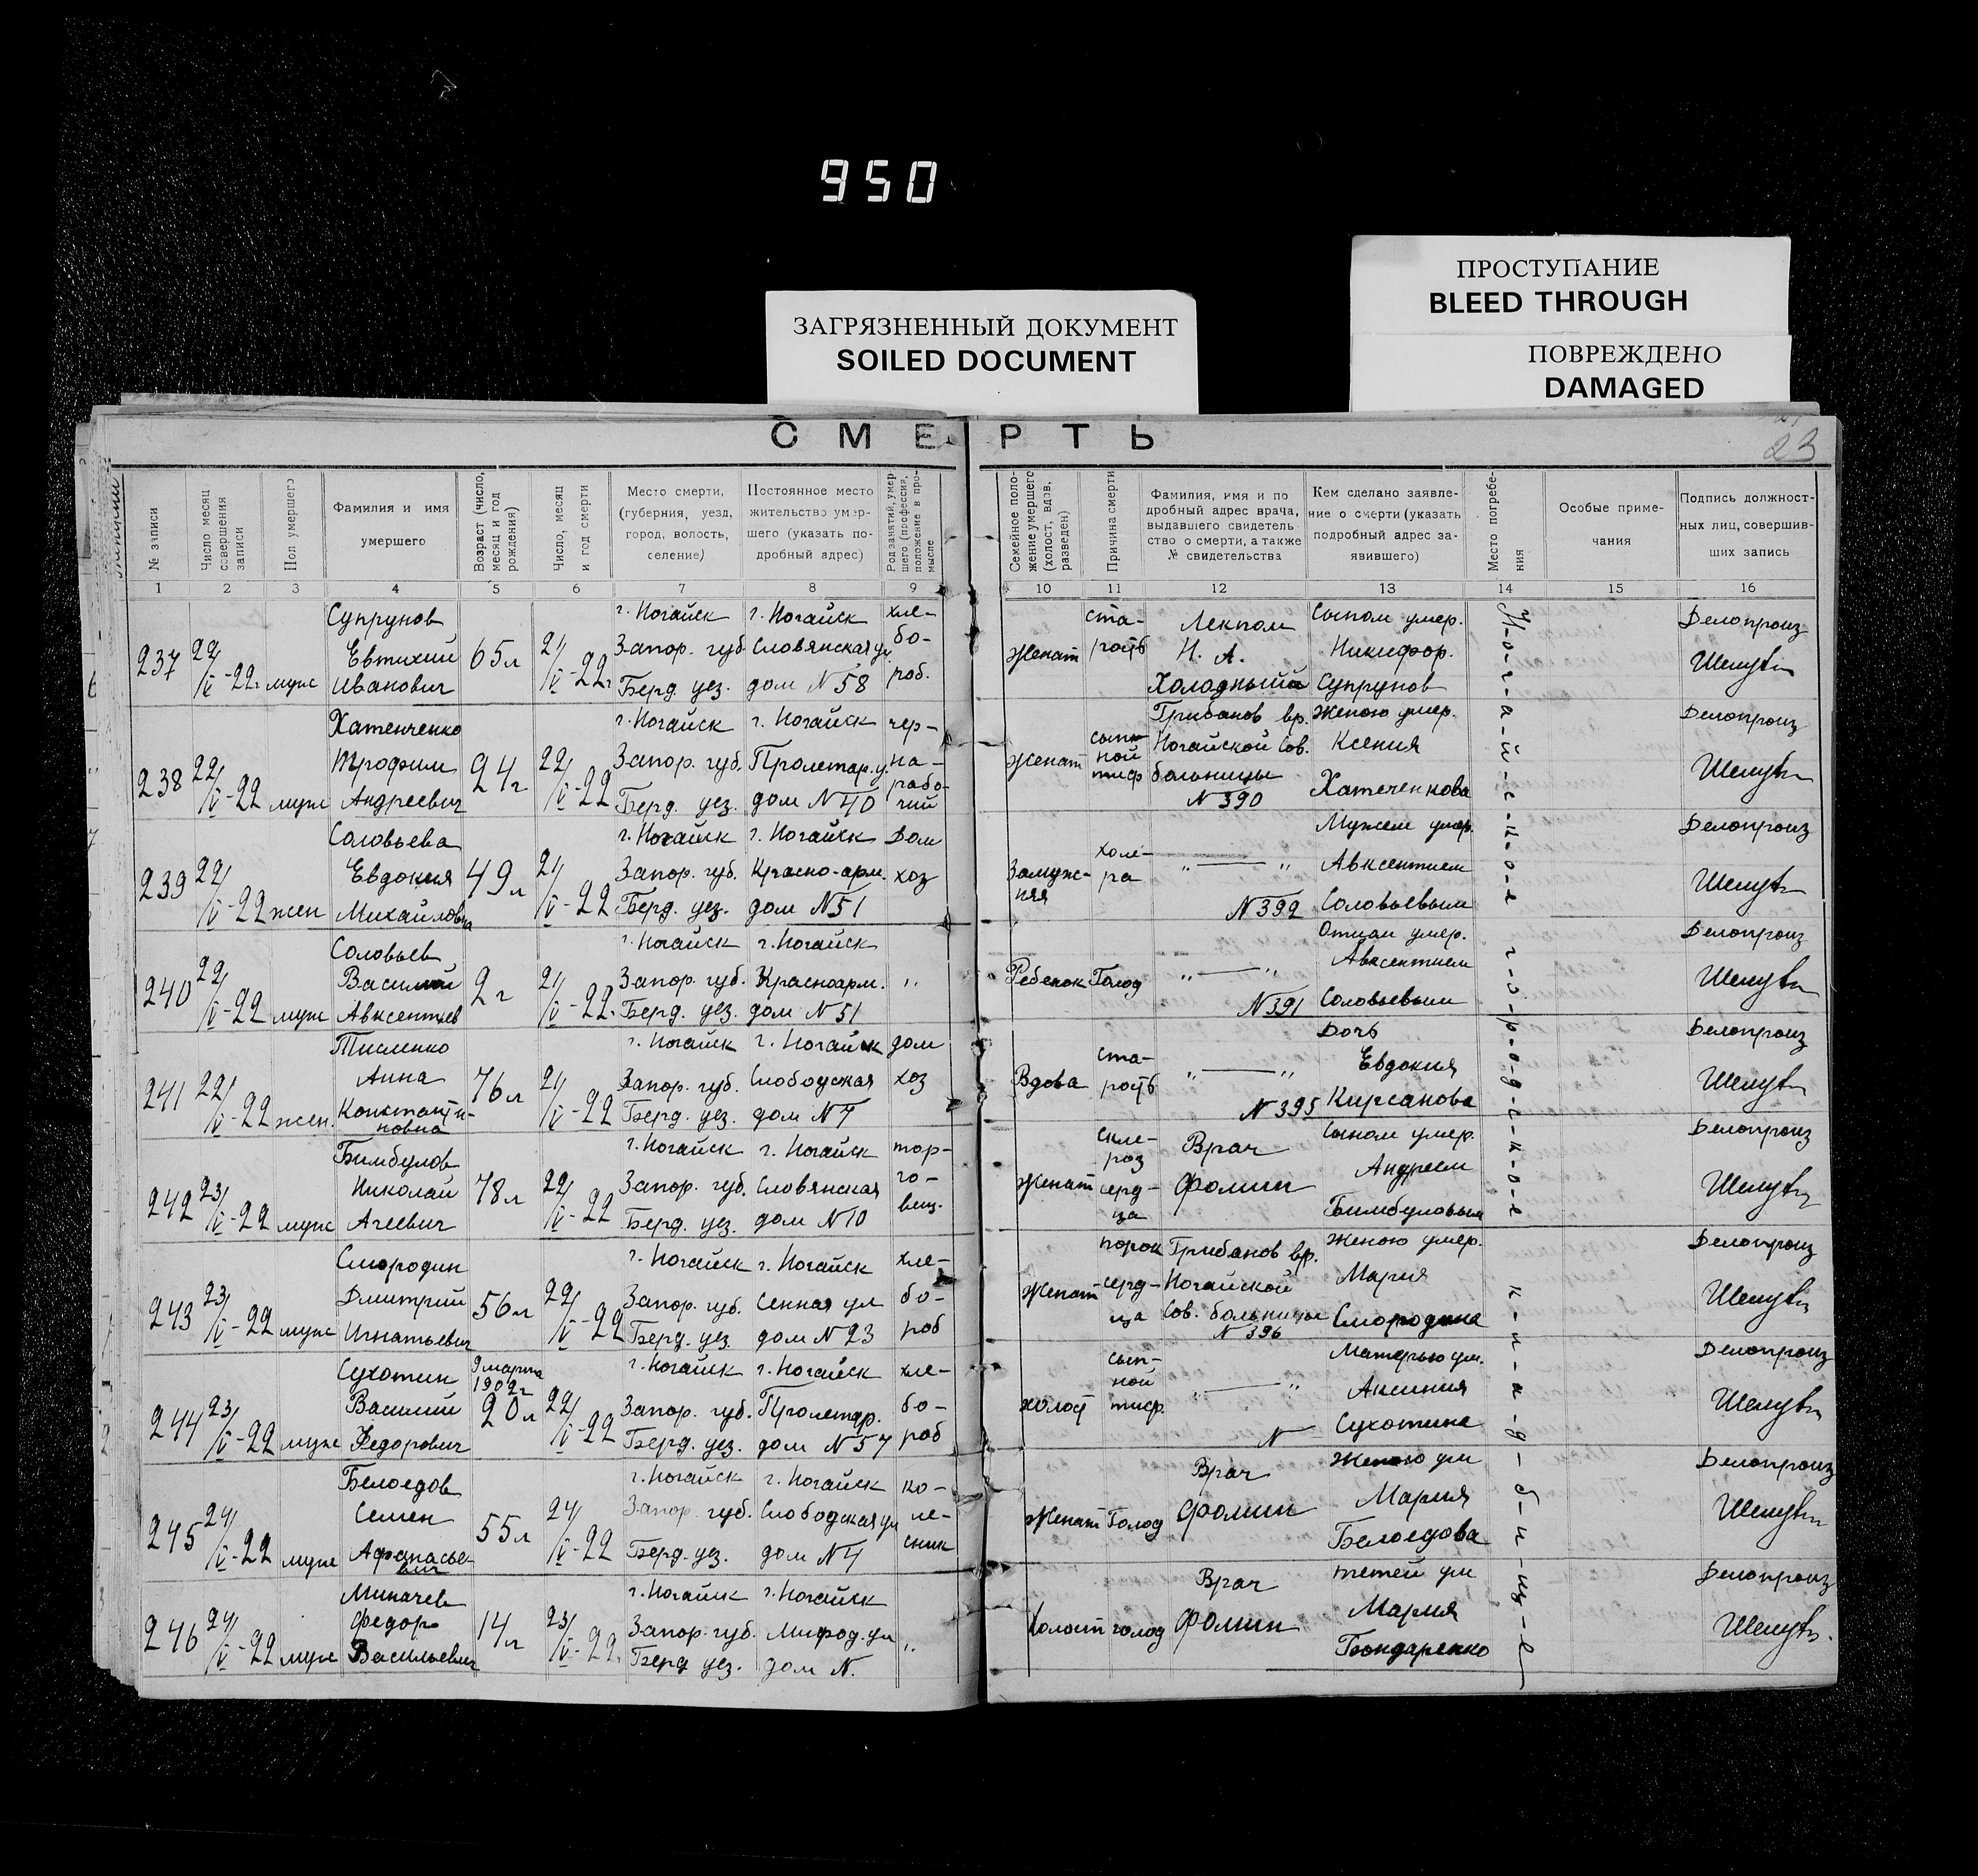 950
ПРОСТУПАНИЕ
BLEED THROUGH
ЗАГРЯЗНЕННЫЙ ДОКУМЕНТ
SOILED DOCUMENT
ПОВРЕЖДЕНО
DAMAGED
СМЕРТЬ
23
№ записи
Число месяц совершения записи
Пол умершего
Фамилия и имя умершего
Возраст (число, месяц и год рождения)
Число, месяц и год смерти
Место смерти, (губерния, уезд, город, волость, селение)
Постоянное место жительство умершего (указать подробный адрес)
Род занятий, умершего (профессия, положение в промысле
Семейное положение умершего (холост, вдов, разведен)
Причина смерти
Фамилия, имя и подробный адрес врача, выдавшего свидетельство о смерти, а также № свидетельства
Кем сделано заявление о смерти (указать подробный адрес заявившего)
Место погребения
Особые примечания
Подпись должностных лиц, совершивших запись
1 2 3 4 5 6 7 8 9 10 11 12 13 14 15 16
237 22/V-22г муж Супрунов Евтихий Иванович 65л 21/V-22г г. Ногайск Запор. губ. Берд. уез. г. Ногайск Словянская ул дом N 58 хле-бо-роб. Женат ста-рость Лекпом Н. А. Холодный Сыном умер. Никифор. Супрунов Делопроиз
238 22/V-22 муж Хатенченко Трофим Андреевич 24г 22/V-22 г. Ногайск Запор. губ. Берд. уез. г. Ногайск Пролетар. у. дом N 40 чер-на-рабо-чий Женат сып-ной тиф Грибанов вр. Ногайской Сов. больницы N 390 Женою умер. Ксения Хатеченкова Делопроиз
239 22/V-22 жен Соловьева Евдокия Михайловна 49л 21/V-22 г. Ногайск Запор. губ. Берд. уез. г. Ногайск Красно-арм. дом N 51 Дом хоз Замуж-няя холе-ра „ — „ N 392 Мужем умер. Авксентием Соловьевым Делопроиз
240 22/V-22 муж Соловьев Василий Авксентьев 2г 21/V-22. г. Ногайск Запор. губ. Берд. уез. г. Ногайск Красноарм. дом N 51 „ Ребенок Голод „ — „ N 391 Отцом умер. Авксентием Соловьевым Делопроиз
241 22/V-22 жен. Тисленко Анна Константи-новна 76л 21/V-22 г. Ногайск Запор. губ. Берд. уез. г. Ногайск Слободская дом N 4 дом хоз Вдова ста-рость „ — „ N 395 Дочь Евдокия Кирсанова Делопроиз
242 23/V-22 муж Бимбулов Николай Агеевич 78л 22/V-22 г. Ногайск Запор. губ. Берд. уез. г. Ногайск Словянская дом N 10 тор-го-вец. Женат скле-роз серд-ца Врач Фомин Сыном умер. Андреем Бимбуловым Делопроиз
243 23/V-22 муж Смородин Дмитрий Игнатьевич 56л 22/V-22 г. Ногайск Запор. губ. Берд. уез. г. Ногайск Сенная ул дом N 23 хле-бо-роб Женат порок серд-ца Грибанов вр. Ногайской Сов. больницы N 396 Женою умер. Мария Смородина Делопроиз
244 23/V-22 муж Сухотин Василий Федорович 9 марта 1902г 20л 22/V-22 г. Ногайск Запор. губ. Берд. уез. г. Ногайск Пролетар. дом N 57 хле-бо-роб холост сып-ной тиф. „ — „ N Матерью ум. Аксиния Сухотина Делопроиз
245 24/V-22 муж Белоедов Семен Афанасье-вич 55л 24/V-22 г. Ногайск Запор. губ. Берд. уез. г. Ногайск Слободская ул дом N 4 ко-ле-сник Женат Голод Врач Фомин Женою ум Мария Белоедова Делопроиз
246 24/V-22 муж Миначев Федор Васильевич 14г 23/V-22. г. Ногайск Запор. губ. Берд уез. г. Ногайск дом N. „ Холост голод Врач Фомин тетей ум Мария Бондаренко Делопроиз
Н-о-г-а-й-с-к-о-е г-о-р-о-д-с-к-о-е к-л-а-д-б-и-щ-е